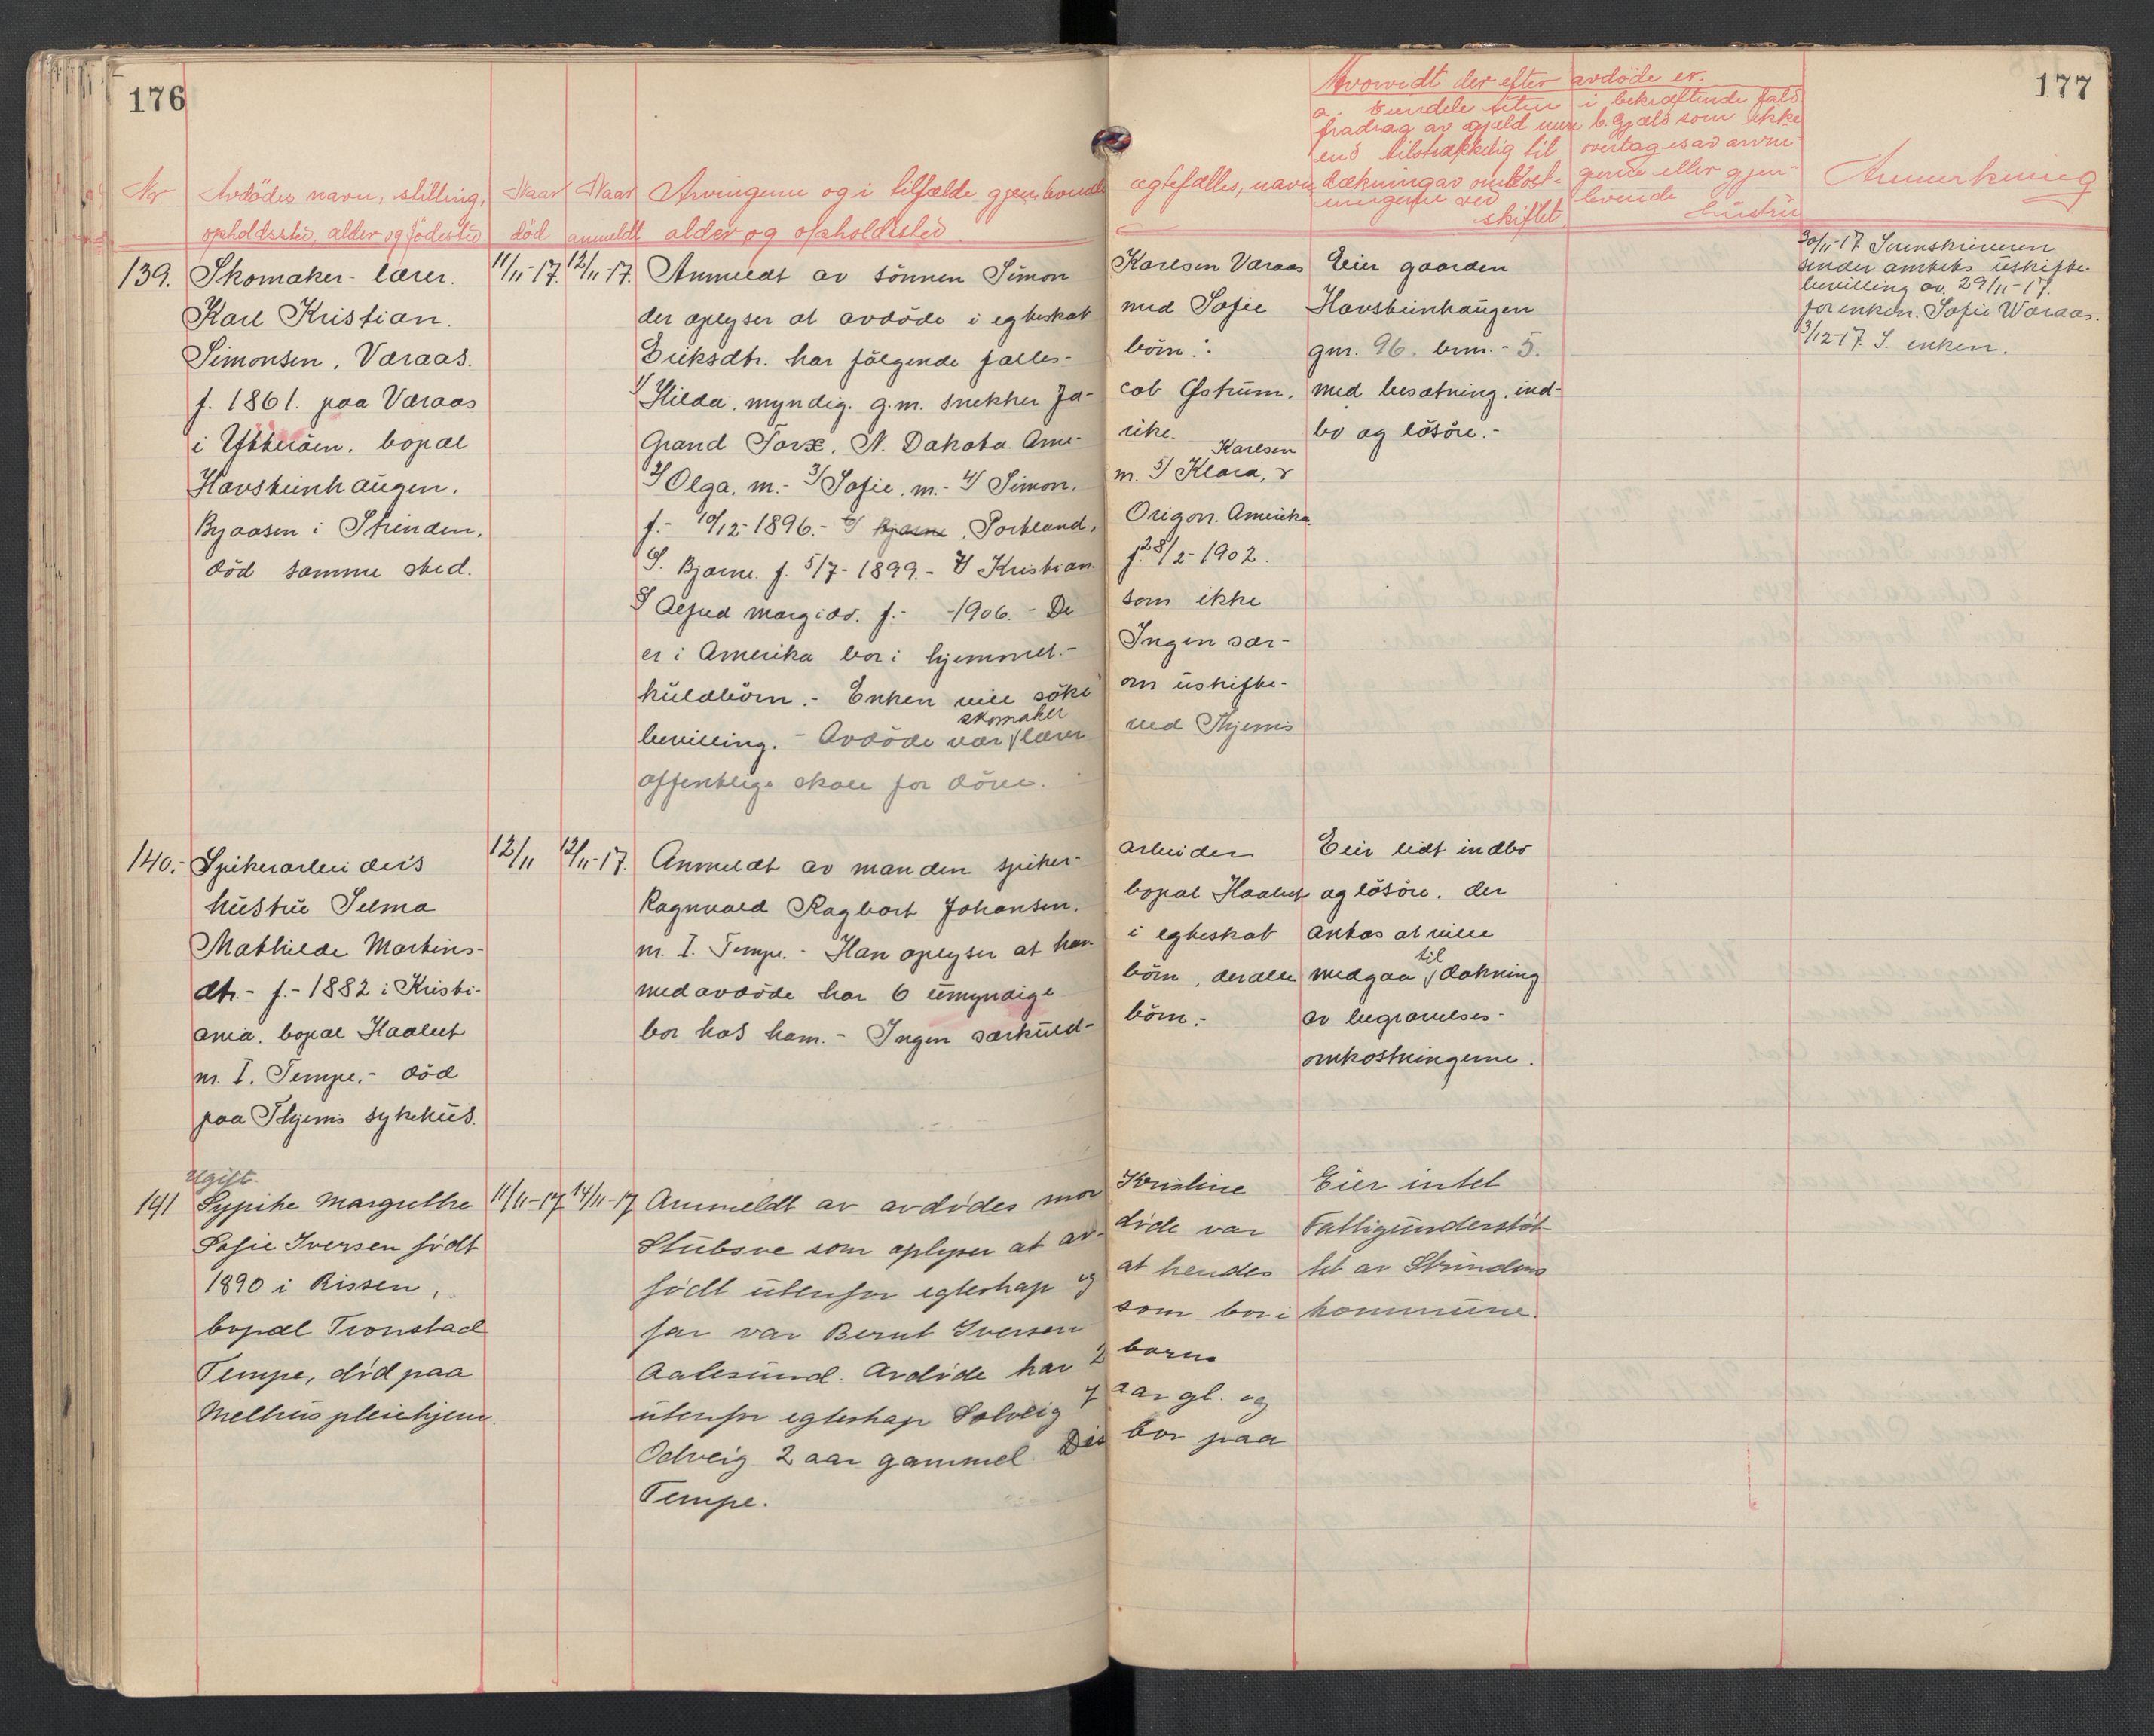 176
177
Hvorvidt der efter avdöde er.
a. Eiendele uten i bekræftende fald
fradrag av gjeld mere b. Gjæld som ikke
end tilstrækkelig til overtages av arvin-
Nr Avdödes navn, stilling, Naar Naar Arvingerne og i tilfælde gjenlevende ægtefælles, navn dækning av omkost- gerne eller gjen- Anmerkning
ingerne ved levende
opholdssted, alder og födested död anmeldt alder og opholdssted skiftet hustru
139. Skomaker-lærer. 11/11-17. 12/11-17. Anmeldt av sönnen Simon Karlsen Væraas Eier gaarden
Karl Kristian. der oplyser at avdöde i egteskab med Sofie Havsteinhaugen
Simonsen, Væraas. Eriksdtr. har fölgende fælles- börn:. gnr. 96. brnr. - 5.
f. 1861. paa Væraas 1/ Hilda. myndig. g.m. snekker Ja- cob Østrum. med besætning, ind-
i Ytteröen. bopæl Grand Forx. N. Dakota. Ame- rike. bo og lösöre.-
Karlsen
Havsteinhaugen. 2/ Olga. m.- 3/ Sofie. m.- 4/ Simon. m. 5/ Klara,
Byaasen i Strinden, f.- 10/12-1896.- 6/ Bjarne, Portland, Origon. Amerika
död samme sted. S. Bjarne. f. 5/7-1899.- 7/ Kristian. f. 28/2-1902.
8/ Alfred Margido. f.- -1906.- De som ikke
er i Amerika bor i hjemmet.- Ingen sær-
kuldbörn.- Enken vil söke om uskifte-
skomaker
bevilling.- Avdöde var lærer ved Thjems
offentlige skole for döve.
30/11-17 Sorenskriveren
sender amtets uskifte-
bevilling av. 29/11-17.
for enken. Sofie Væraas.
3/12-17. S. enken.
140.- Spikerarbeiders 12/11 12/11-17. Anmeldt av manden spiker- arbeider Eier lidt indbo
hustru Selma Ragnvald Ragbort Johansen. bopæl Haalut og lösöre. der
Mathilde Martins- nr. I. Tempe.- Han oplyser at han i egteskab antas at ville
til
dtr.- f.- 1882 i Kristi- med avdöde har 6 umyndige börn, der alle medgaa dækning
ania. bopæl Haalut bor hos ham.- Ingen særkuld- börn.- av begravelses-
nr. I. Tempe.- död omkostningerne.
paa Thjems sykehus.
Ugift.
141 Sypike Margrethe 11/11-17 14/11-17 Anmeldt av avdödes mor Kristine Eier intet
Sofie Iversen födt Stubsve som oplyser at av- döde var Fattigunderstöt-
1890 i Rissen, födt utenfor egteskap og at hendes tet av Strindens
bopæl Tronstad far var Bernt Iversen som bor i kommune.
Tempe, död paa Aalesund. Avdöde har 2 barn
Melhus pleiehjem. utenfor egteskap Solveig 7 aar gl. og
Odveig 2 aar gammel. Die bor paa
Tempe.